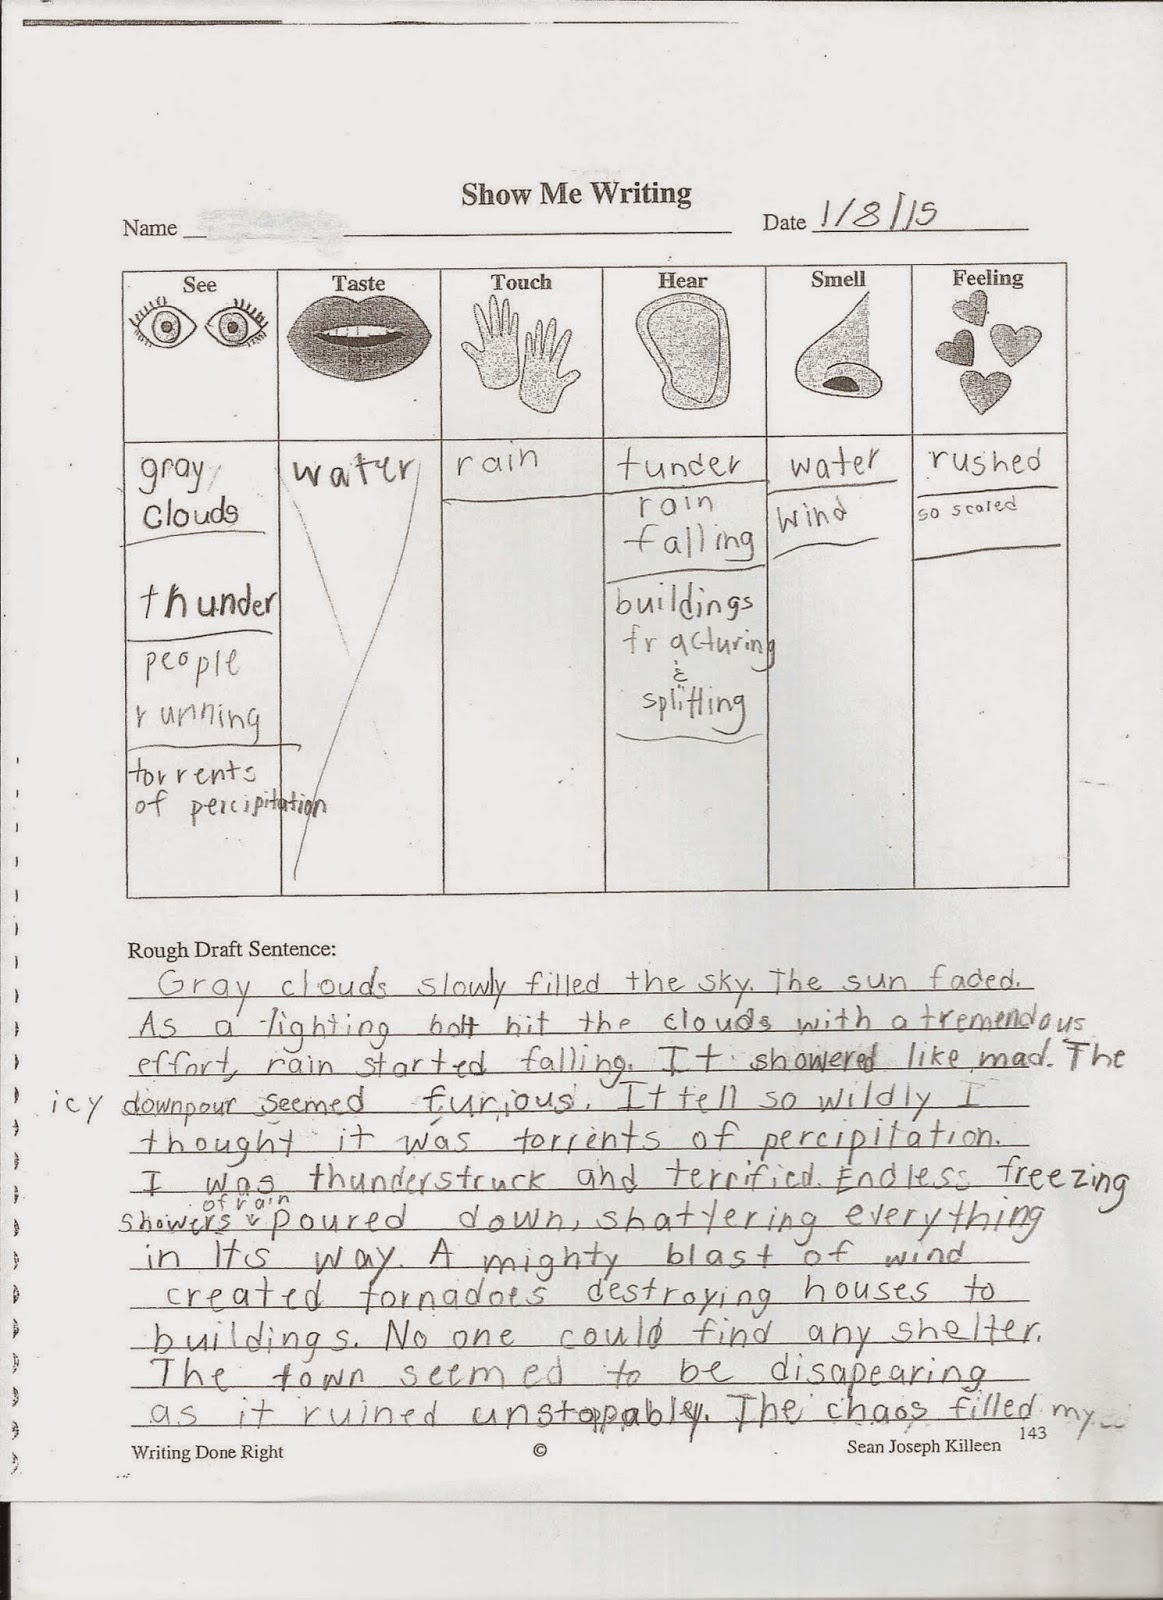 Show Me Writing
Name
Date 1/8/15
See Taste Touch Hear Smell Feeling
gray
clouds
thunder
people
running
torrents
of percipitation
water
rain
tunder
rain
falling
buildings
fracturing
&
splitting
water
wind
rushed
so scared
Rough Draft Sentence:
Gray clouds slowly filled the sky. The sun faded.
As a lighting bolt hit the clouds with a tremendous
effort, rain started falling. It showered like mad. The
icy downpour seemed furious. It fell so wildly I
thought it was torrents of percipitation.
I was thunderstruck and terrified. Endless freezing
of rain
showers poured down, shattering everything
in its way. A mighty blast of wind
created tornadoes destroying houses to
buildings. No one could find any shelter.
The town seemed to be disapearing
as it ruined unstoppably. The chaos filled my
143
Writing Done Right © Sean Joseph Killeen